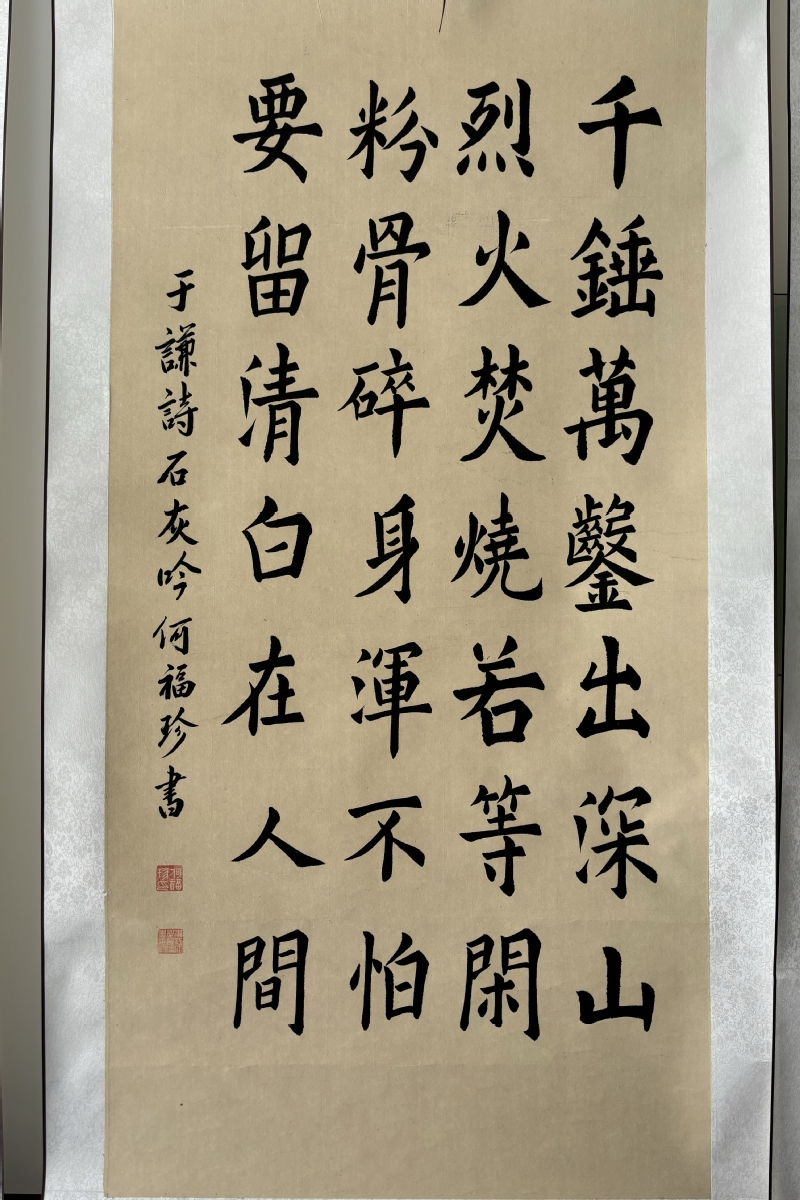 千錘萬鑿出深山
烈火焚燒若等閑
粉骨碎身渾不怕
要留清白在人間
于謙詩石灰吟何福珍書